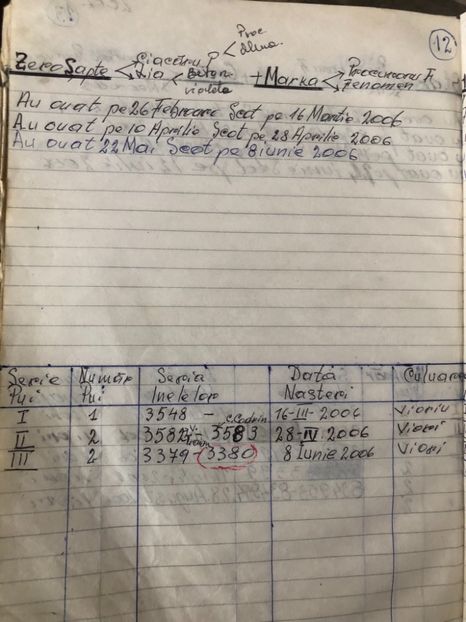 12
Proc
Alina.
Ciacâru P
Zero Sapte Zia Betan violeta + Marka Procuroru F.
Fenomen
Au ouat pe 26 Februarie Scot pe 16 Martie 2006
Au ouat pe 10 Aprilie Scot pe 28 Aprilie 2006
Au ouat 22 Mai Scot pe 8 iunie 2006
Serie Număr Seria Data Culoare
Pui Pui Inelelor Nasteri
I 1 3548 - 16-III-2006 Vioriu
c.Codrin
II 2 3582 - 3583 28-IV-2006 Viori
III 2 3379-3380 8 Iunie 2006 Viori